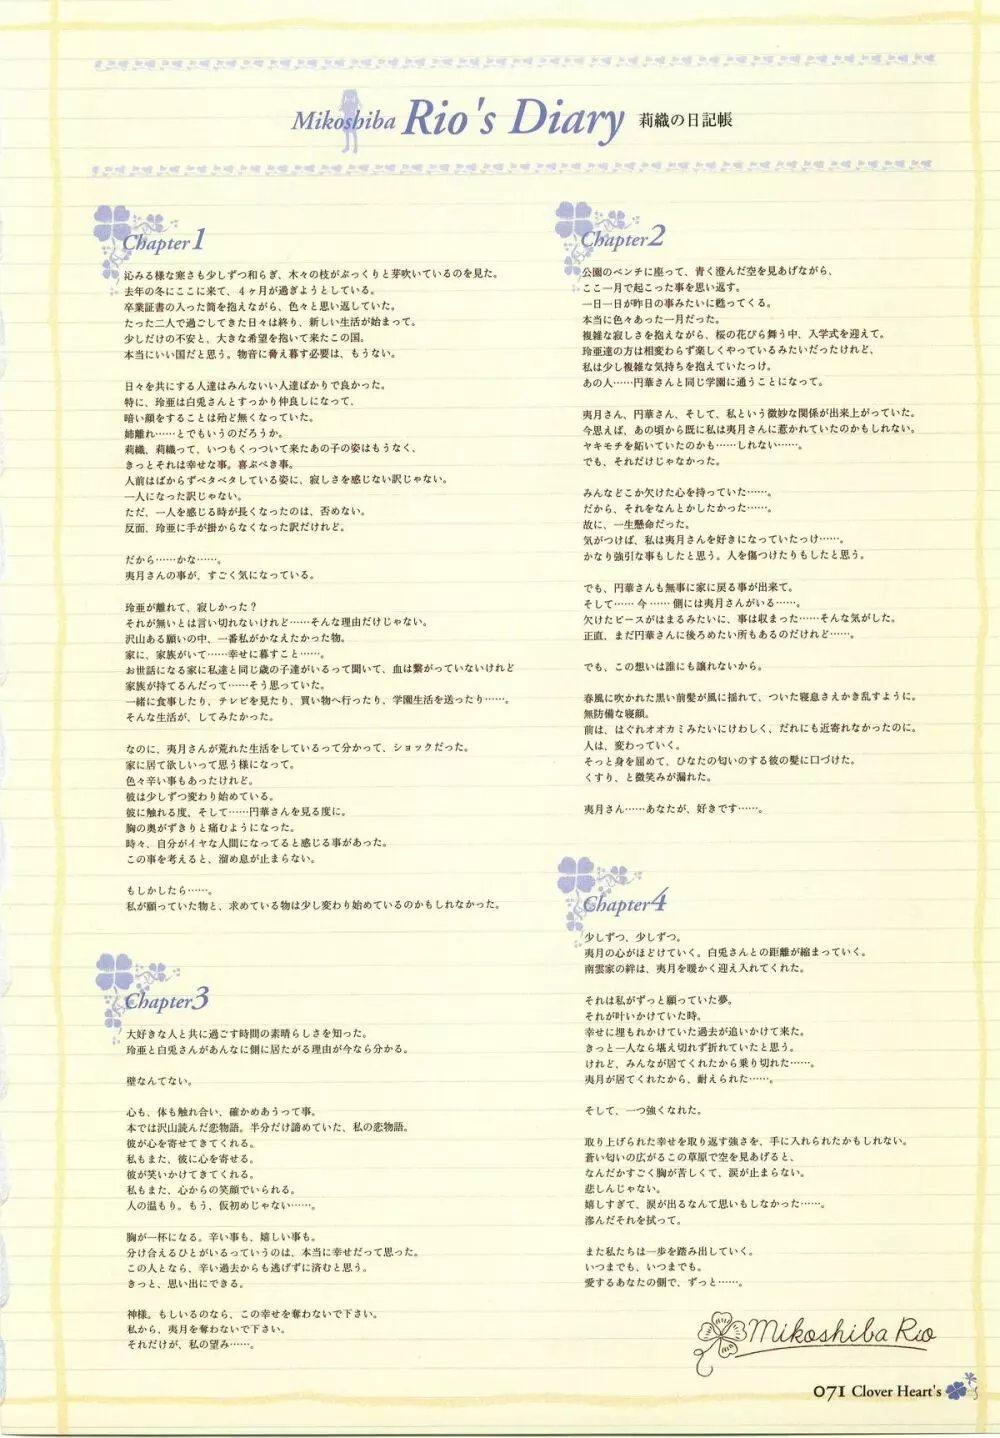 Mikoshiba Rio's Diary 莉織の日記帳
Chapter1
沁みる様な寒さも少しずつ和らぎ、木々の枝がぷっくりと芽吹いているのを見た。
去年の冬にここに来て、4ヶ月が過ぎようとしている。
卒業証書の入った筒を抱えながら、色々と思い返していた。
たった二人で過ごしてきた日々は終り、新しい生活が始まって。
少しだけの不安と、大きな希望を抱いて来たこの国。
本当にいい国だと思う。物音に脅え暮す必要は、もうない。
日々を共にする人達はみんないい人達ばかりで良かった。
特に、玲亜は白兎さんとすっかり仲良しになって、
暗い顔をすることは殆ど無くなっていた。
姉離れ……とでもいうのだろうか。
莉織、莉織って、いつもくっついて来たあの子の姿はもうなく、
きっとそれは幸せな事。喜ぶべき事。
人前はばからずベタベタしている姿に、寂しさを感じない訳じゃない。
一人になった訳じゃない。
ただ、一人を感じる時が長くなったのは、否めない。
反面、玲亜に手が掛からなくなった訳だけれど。
だから……かな……。
夷月さんの事が、すごく気になっている。
玲亜が離れて、寂しかった?
それが無いとは言い切れないけれど……そんな理由だけじゃない。
沢山ある願いの中、一番私がかなえたかった物。
家に、家族がいて……幸せに暮すこと……。
お世話になる家に私達と同じ歳の子達がいるって聞いて、血は繋がっていないけれど
家族が持てるんだって……そう思っていた。
一緒に食事したり、テレビを見たり、買い物へ行ったり、学園生活を送ったり……。
そんな生活が、してみたかった。
なのに、夷月さんが荒れた生活をしているって分かって、ショックだった。
家に居て欲しいって思う様になって。
色々辛い事もあったけれど。
彼は少しずつ変わり始めている。
彼に触れる度、そして……円華さんを見る度に。
胸の奥がずきりと痛むようになった。
時々、自分がイヤな人間になってると感じる事があった。
この事を考えると、溜め息が止まらない。
もしかしたら……。
私が願っていた物と、求めている物は少し変わり始めているのかもしれなかった。
Chapter2
公園のベンチに座って、青く澄んだ空を見あげながら、
ここ一月で起こった事を思い返す。
一日一日が昨日の事みたいに甦ってくる。
本当に色々あった一月だった。
複雑な寂しさを抱えながら、桜の花びら舞う中、入学式を迎えて。
玲亜達の方は相変わらず楽しくやっているみたいだったけれど、
私は少し複雑な気持ちを抱えていたっけ。
あの人……円華さんと同じ学園に通うことになって。
夷月さん、円華さん、そして、私という微妙な関係が出来上がっていた。
今思えば、あの頃から既に私は夷月さんに惹かれていたのかもしれない。
ヤキモチを妬いていたのかも……しれない……。
でも、それだけじゃなかった。
みんなどこか欠けた心を持っていた……。
だから、それをなんとかしたかった……。
故に、一生懸命だった。
気がつけば、私は夷月さんを好きになっていたっけ……。
かなり強引な事もしたと思う。人を傷つけたりもしたと思う。
でも、円華さんも無事に家に戻る事が出来て。
そして…… 今 …… 側には夷月さんがいる……。
欠けたピースがはまるみたいに、事は収まった……そんな気がした。
正直、まだ円華さんに後ろめたい所もあるのだけれど……。
でも、この想いは誰にも譲れないから。
春風に吹かれた黒い前髪が風に揺れて、ついた寝息さえかき乱すように。
無防備な寝顔。
前は、はぐれオオカミみたいにけわしく、だれにも近寄れなかったのに。
人は、変わっていく。
そっと身を屈めて、ひなたの匂いのする彼の髪に口づけた。
くすり、と微笑みが漏れた。
夷月さん……あなたが、好きです……。
Chapter3
大好きな人と共に過ごす時間の素晴らしさを知った。
玲亜と白兎さんがあんなに側に居たがる理由が今なら分かる。
壁なんてない。
心も、体も触れ合い、確かめあうって事。
本では沢山読んだ恋物語。半分だけ諦めていた、私の恋物語。
彼が心を寄せてきてくれる。
私もまた、彼に心を寄せる。
彼が笑いかけてきてくれる。
私もまた、心からの笑顔でいられる。
人の温もり。もう、仮初めじゃない……。
胸が一杯になる。辛い事も、嬉しい事も。
分け合えるひとがいるっていうのは、本当に幸せだって思った。
この人となら、辛い過去からも逃げずに済むと思う。
きっと、思い出にできる。
神様。もしいるのなら、この幸せを奪わないで下さい。
私から、夷月を奪わないで下さい。
それだけが、私の望み……。
Chapter4
少しずつ、少しずつ。
夷月の心がほどけていく。白兎さんとの距離が縮まっていく。
南雲家の絆は、夷月を暖かく迎え入れてくれた。
それは私がずっと願っていた夢。
それが叶いかけていた時。
幸せに埋もれかけていた過去が追いかけて来た。
きっと一人なら堪え切れず折れていたと思う。
けれど、みんなが居てくれたから乗り切れた……。
夷月が居てくれたから、耐えられた……。
そして、一つ強くなれた。
取り上げられた幸せを取り返す強さを、手に入れられたかもしれない。
蒼い匂いの広がるこの草原で空を見あげると、
なんだかすごく胸が苦しくて、涙が止まらない。
悲しんじゃない。
嬉しすぎて、涙が出るなんて思いもしなかった……。
滲んだそれを拭って。
また私たちは一歩を踏み出していく。
いつまでも、いつまでも。
愛するあなたの側で、ずっと……。
Mikoshiba Rio
071 Clover Heart's